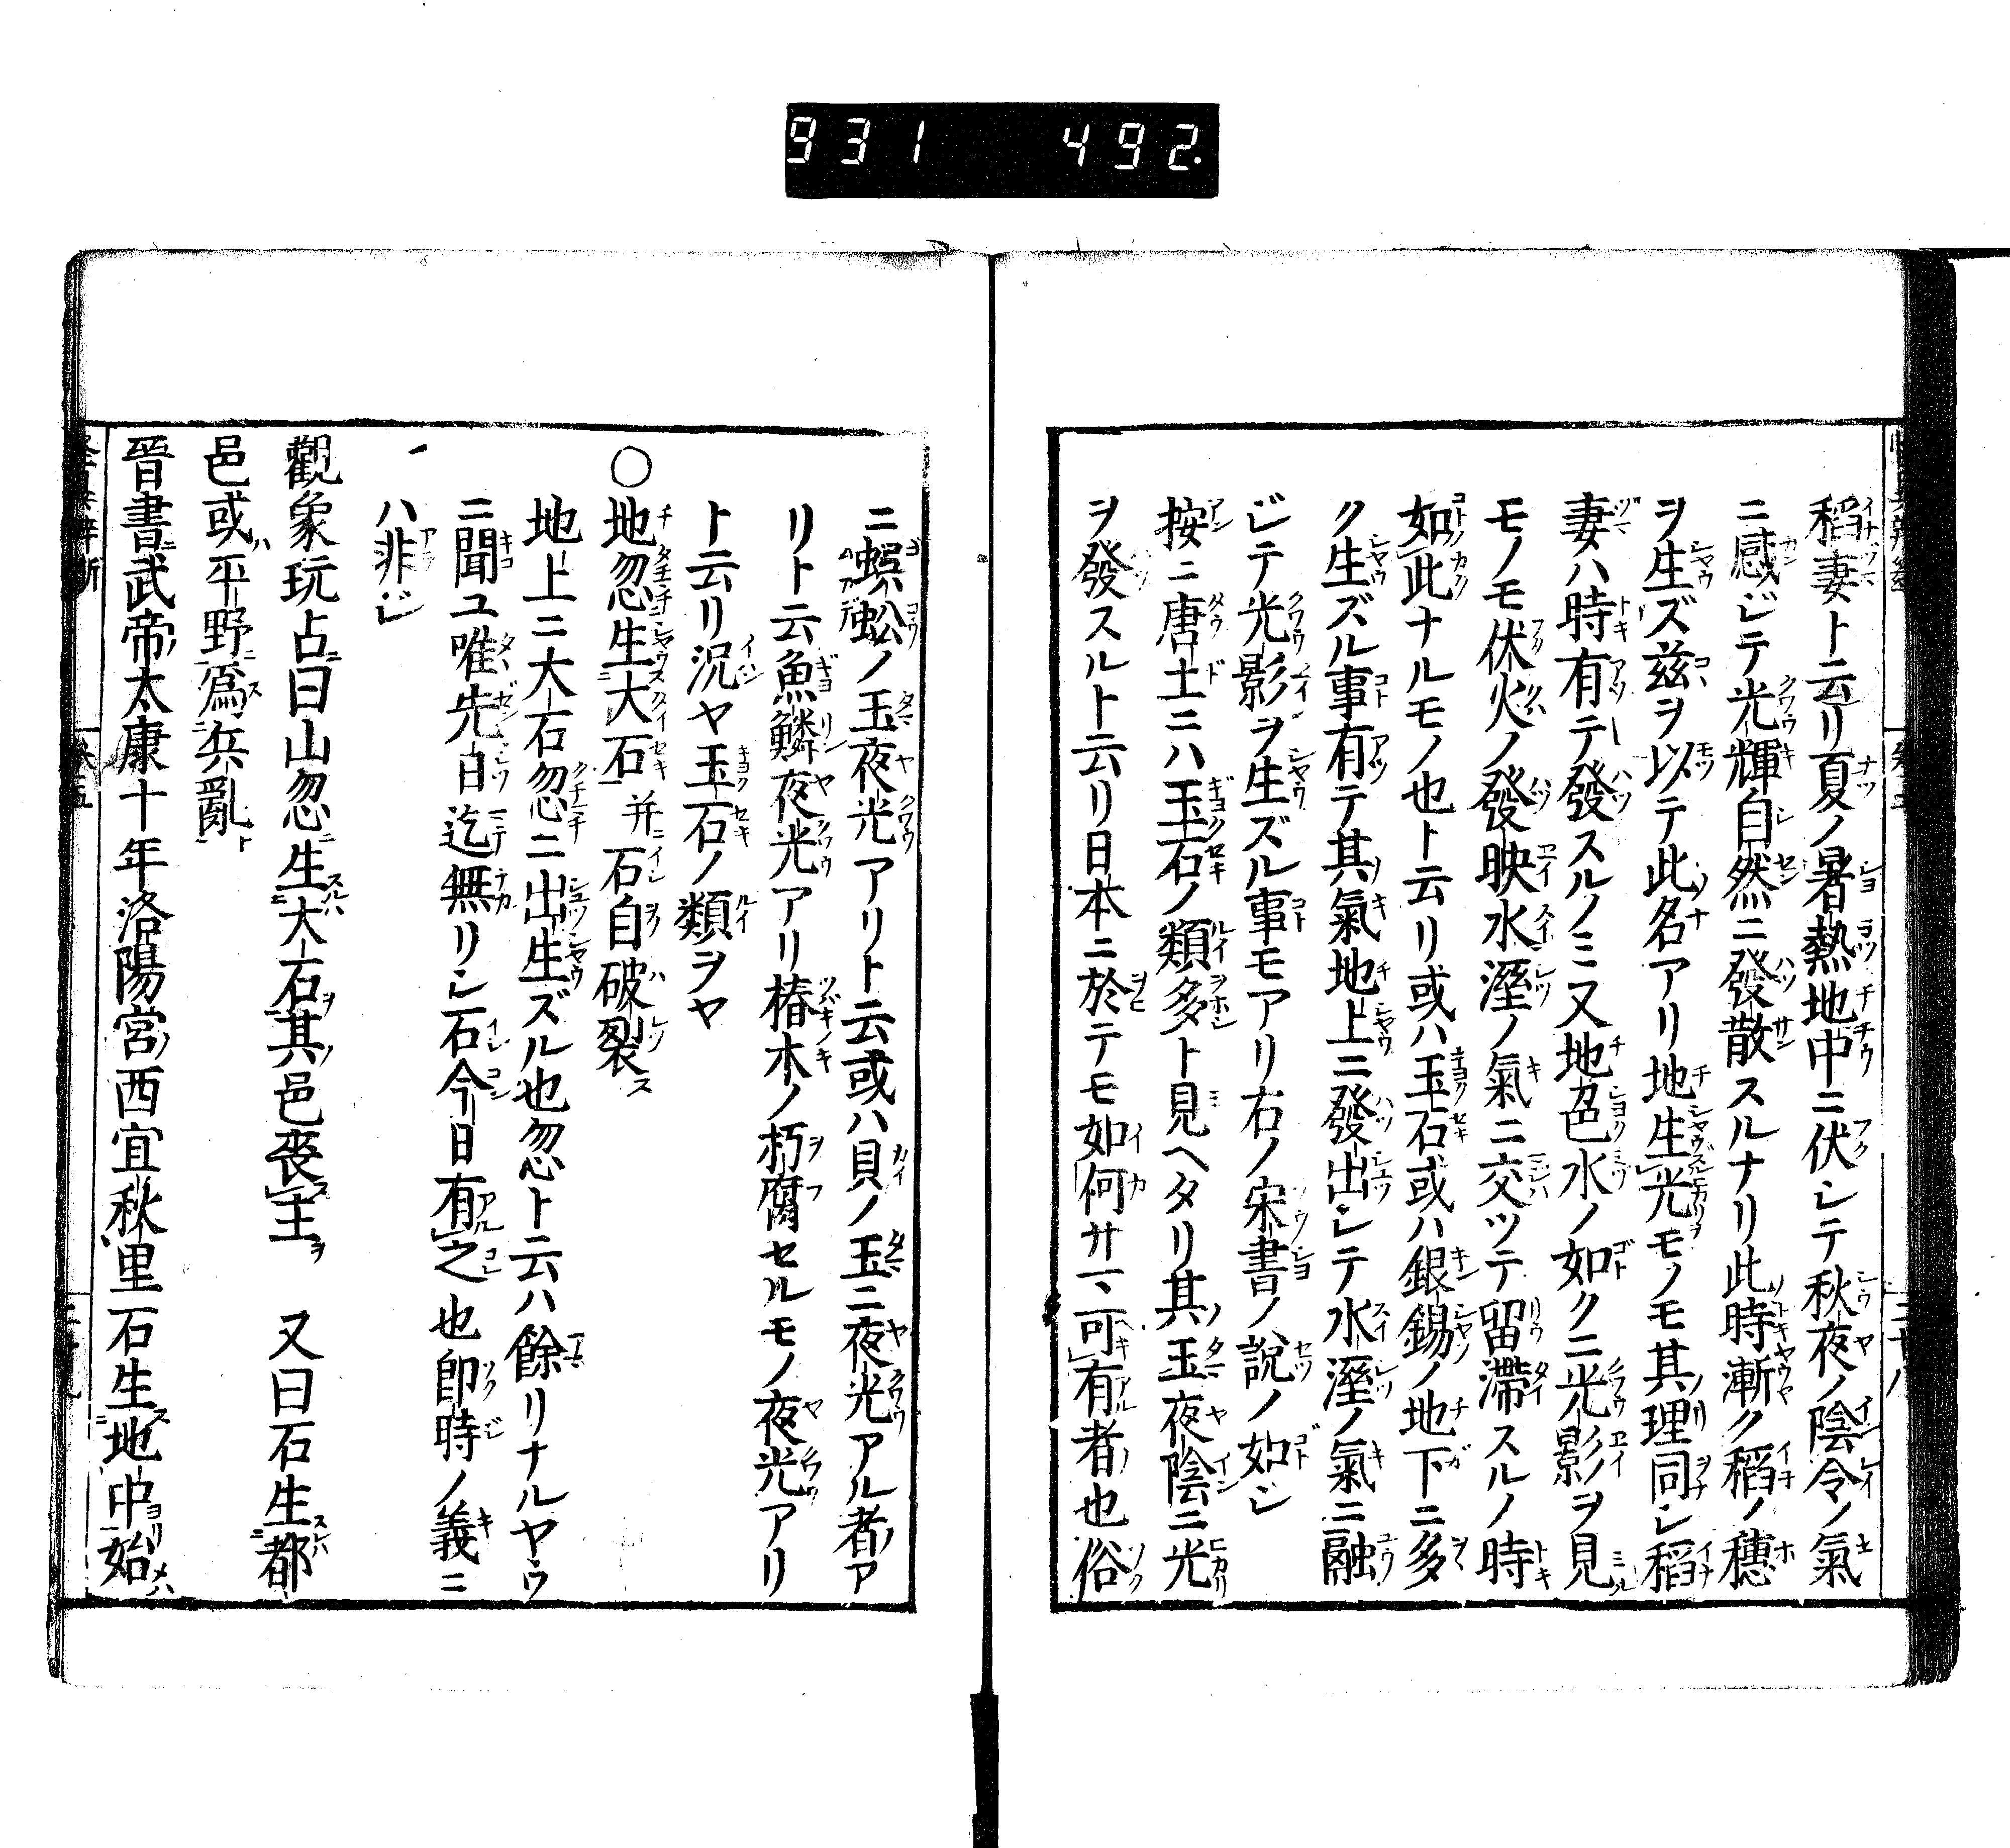 931 492.
稻妻ト云リ夏ノ暑熱地中ニ伏シテ秋夜ノ陰令ノ氣
ニ感ジテ光輝自然ニ發散スルナリ此時漸ク稻ノ穗
ヲ生ズ茲ヲ以テ此名アリ地生光モノモ其理同シ稻
妻ハ時有テ發スルノミ又地色水ノ如クニ光影ヲ見
モノモ伏火ノ發映水溼ノ氣ニ交ツテ留滯スルノ時
如此ナルモノ也ト云リ或ハ玉石或ハ銀錫ノ地下ニ多
ク生ズル事有テ其氣地上ニ發出シテ水溼ノ氣ニ融
ジテ光影ヲ生ズル事モアリ右ノ宋書ノ說ノ如シ
按ニ唐土ニハ玉石ノ類多ト見ヘタリ其玉夜陰ニ光
ヲ發スルト云リ日本ニ於テモ如何サマ可有者也俗
ニ蜈蚣ノ玉夜光アリト云或ハ貝ノ玉ニ夜光アル者ア
リト云魚鱗夜光アリ椿木ノ朽腐セルモノ夜光アリ
ト云リ況ヤ玉石ノ類ヲヤ
○地忽生大石并石自破裂ス
地上ニ大石忽ニ出生ズル也忽ト云ハ餘リナルヤウ
ニ聞ユ唯先日迄無リシ石今日有之也即時ノ義ニ
ハ非ジ
觀象玩占曰山忽生大石其邑喪主 又曰石生都
邑或平野爲兵亂
晉書武帝太康十年洛陽宮西宜秋里石生地中始